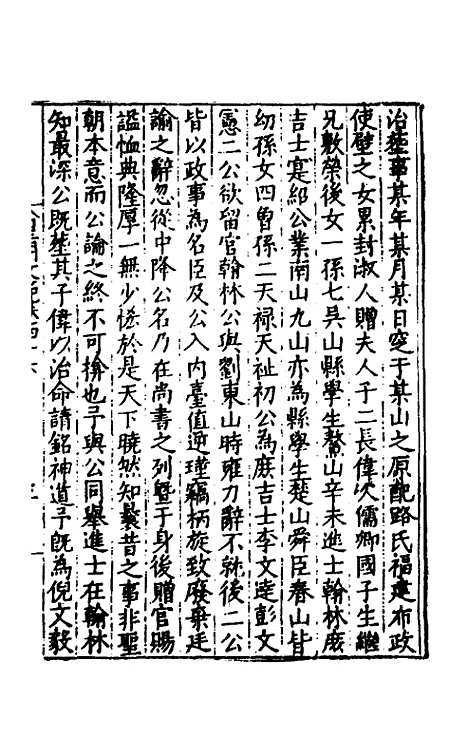 治塟事某年某月某日窆于某山之原配路氏福建布政
使壁之女累封淑人贈夫人子二長偉次儒卿國子生繼
兄敷榮後女一孫七具山縣學生鰲山辛未進士翰林庶
吉士寔紹公業南山九山亦為縣學生楚山舜臣春山皆
幼孫女四曾孫二天禄天祉初公為庶吉士李文達彭文
憲二公欲留官翰林公與劉東山時雍力辭不就後二公
皆以政事為名臣及公入内臺值逆瑾竊柄旋致廢棄廷
諭之辭忽從中降公名乃在尚書之列暨于身後贈官賜
謚恤典隆厚一無少恡於是天下曉然知曩昔之事非聖
朝本意而公論之終不可揜也予與公同舉進士在翰林
知最深公既塟其子偉以治命請銘神道予既為倪文毅